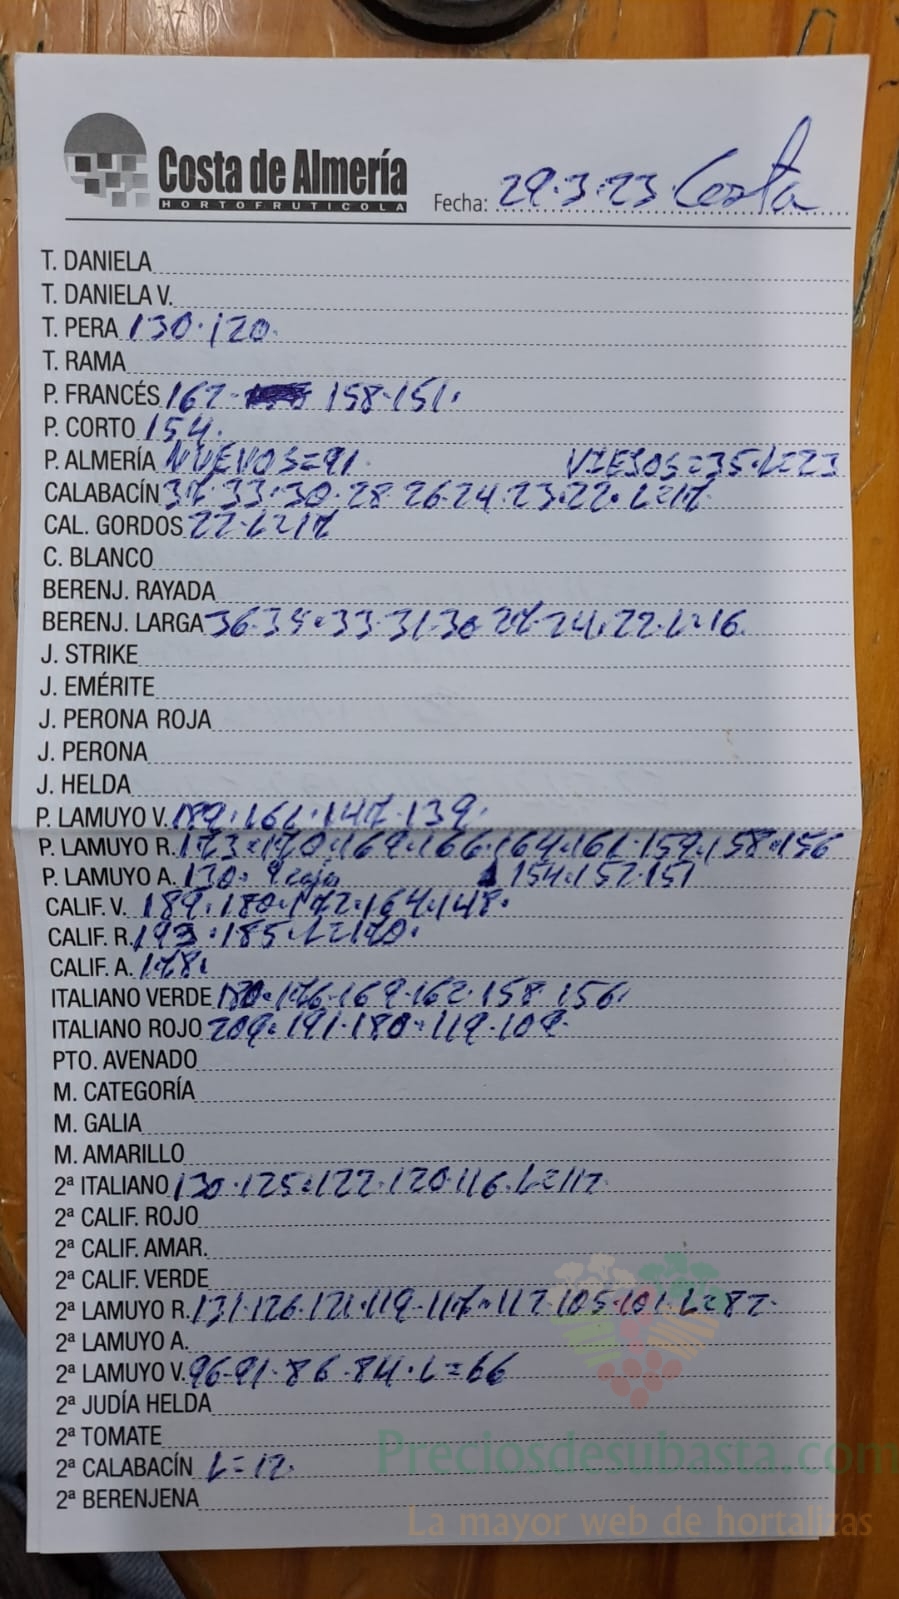 Costa de Almería
HORTOFRUTICOLA
Fecha: 29.3.23 Costa
T. DANIELA
T. DANIELA V.
T. PERA 130.120.
T. RAMA
P. FRANCÉS 162. 158.151.
P. CORTO 154.
P. ALMERÍA NUEVOS=91. VIEJOS=35.L=23
CALABACÍN 37.33.30.28.26.24.23.22.L=17
CAL. GORDOS 22.L=17
C. BLANCO
BERENJ. RAYADA
BERENJ. LARGA 36.35.33.31.30.27.24.22.L=16.
J. STRIKE
J. EMÉRITE
J. PERONA ROJA
J. PERONA
J. HELDA
P. LAMUYO V. 189.161.147.139.
P. LAMUYO R. 173.170.169.166.164.161.159.158.156
P. LAMUYO A. 130. 154.152.151
CALIF. V. 189.180.172.164.148.
CALIF. R. 193.185.L=170.
CALIF. A. 178.
ITALIANO VERDE 180.176.169.162.158.156.
ITALIANO ROJO 209.191.180.119.109.
PTO. AVENADO
M. CATEGORÍA
M. GALIA
M. AMARILLO
2ª ITALIANO 130.125.122.120.116.L=112
2ª CALIF. ROJO
2ª CALIF. AMAR.
2ª CALIF. VERDE
2ª LAMUYO R. 131.126.121.119.117.112.105.101.L=82.
2ª LAMUYO A.
2ª LAMUYO V. 96.91.86.84.L=66
2ª JUDÍA HELDA
2ª TOMATE
2ª CALABACÍN L=12.
2ª BERENJENA
Preciosdesubasta.com
La mayor web de hortalizas